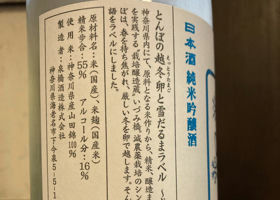 日本酒 純米吟醸酒
とんぼの越冬卵と雪だるまラベル
神奈川県内にて、原料となる米作りから、精米、醸造ま
を実践する、栽培醸造蔵・いづみ橋。減農薬栽培のシン
ぼは、春を待ち焦がれ、厳しい冬を卵で越します。そん
語をラベルにしました。
原材料名：米（国産）、米麹（国産米）
精米歩合：55％ アルコール分：16％
使用米：神奈川県産山田錦100％
製造者：泉橋酒造株式会社
神奈川県海老名市下今泉5-5-1